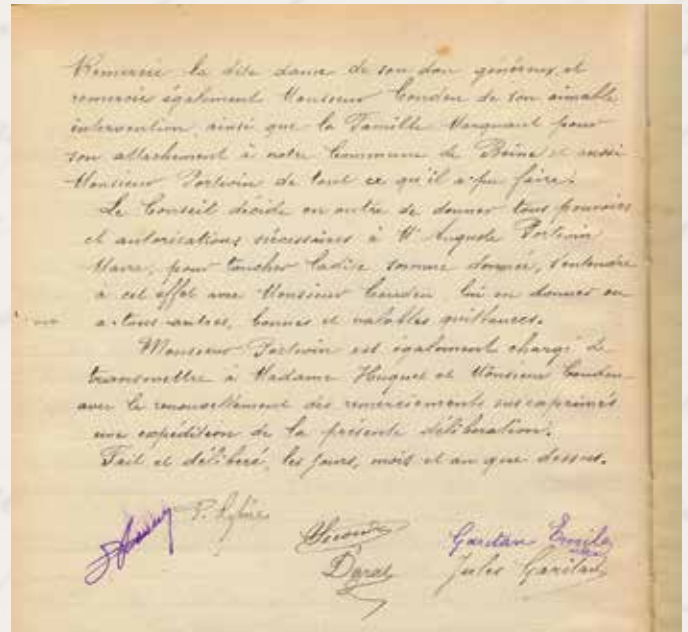 Remercie la dite dame de son don généreux, et
remercie également Monsieur Coudeu de son aimable
intervention, ainsi que la Famille Marguant pour
son attachement à notre Commune de Beine et aussi
Monsieur Fortwin de tout ce qu'il a pu faire.
Le Conseil décide en outre de donner tous pouvoirs
et autorisations nécessaires à M. Auguste Fortwin
Maire, pour toucher ladite somme donnée, s'entendre
à cet effet avec Monsieur Coudeu lui en donner ou
à tous autres, bonnes et valables quittances.
Monsieur Fortwin est également chargé de
transmettre à Madame Huguet et Monsieur Coudeu
avec le renouvellement des remerciements susexprimés
une expédition de la présente délibération.
Fait et délibéré, les jours, mois et an que dessus.
Garitan Emile
Jules Garitan